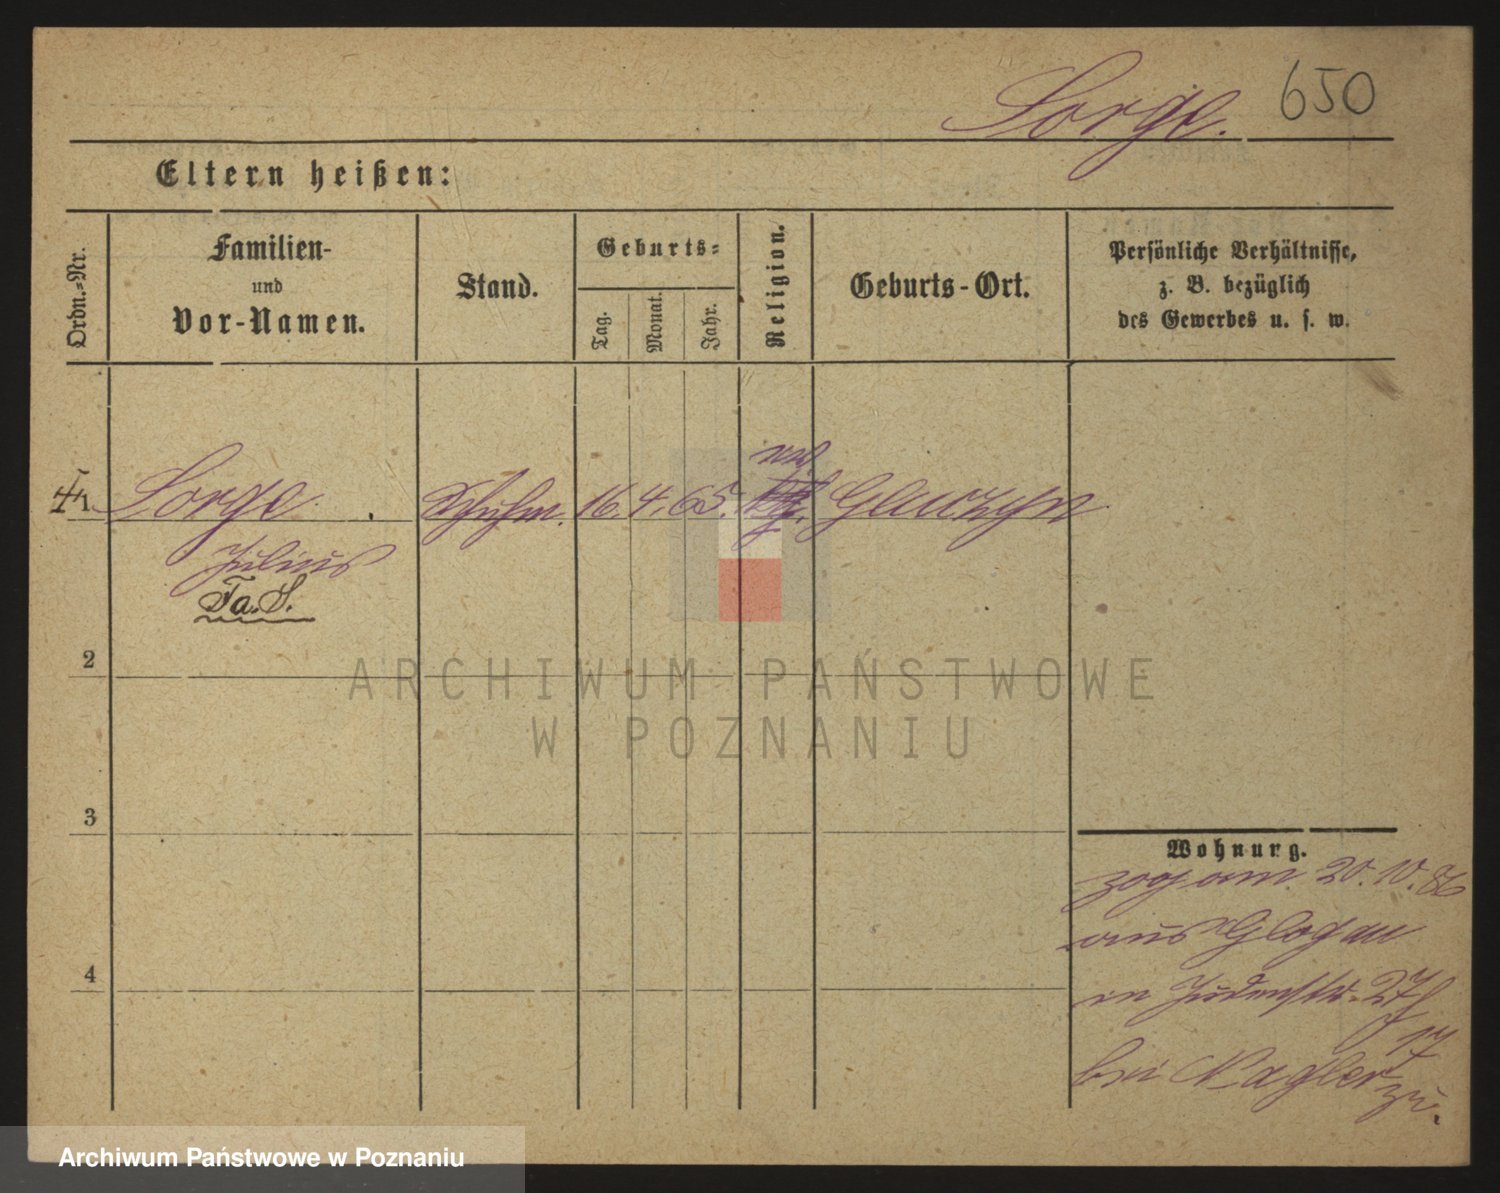 Sorge. 650
Eltern heißen:
Ordn.=Nr.
Familien-
und
Vor-Namen.
Stand.
Geburts=
Tag.
Monat.
Jahr.
Religion.
Geburts-Ort.
Persönliche Verhältnisse,
z. B. bezüglich
des Gewerbes u. s. w.
Sorge Schuhm. 16. 4. 65.
Julius
Ta. S.
2
3
4
Wohnung.
zog am 20.10.86
aus Glogau
n Judenstr. 27
17
bei Nagler
zu.
ARCHIWUM PAŃSTWOWE
W POZNANIU
Archiwum Państwowe w Poznaniu